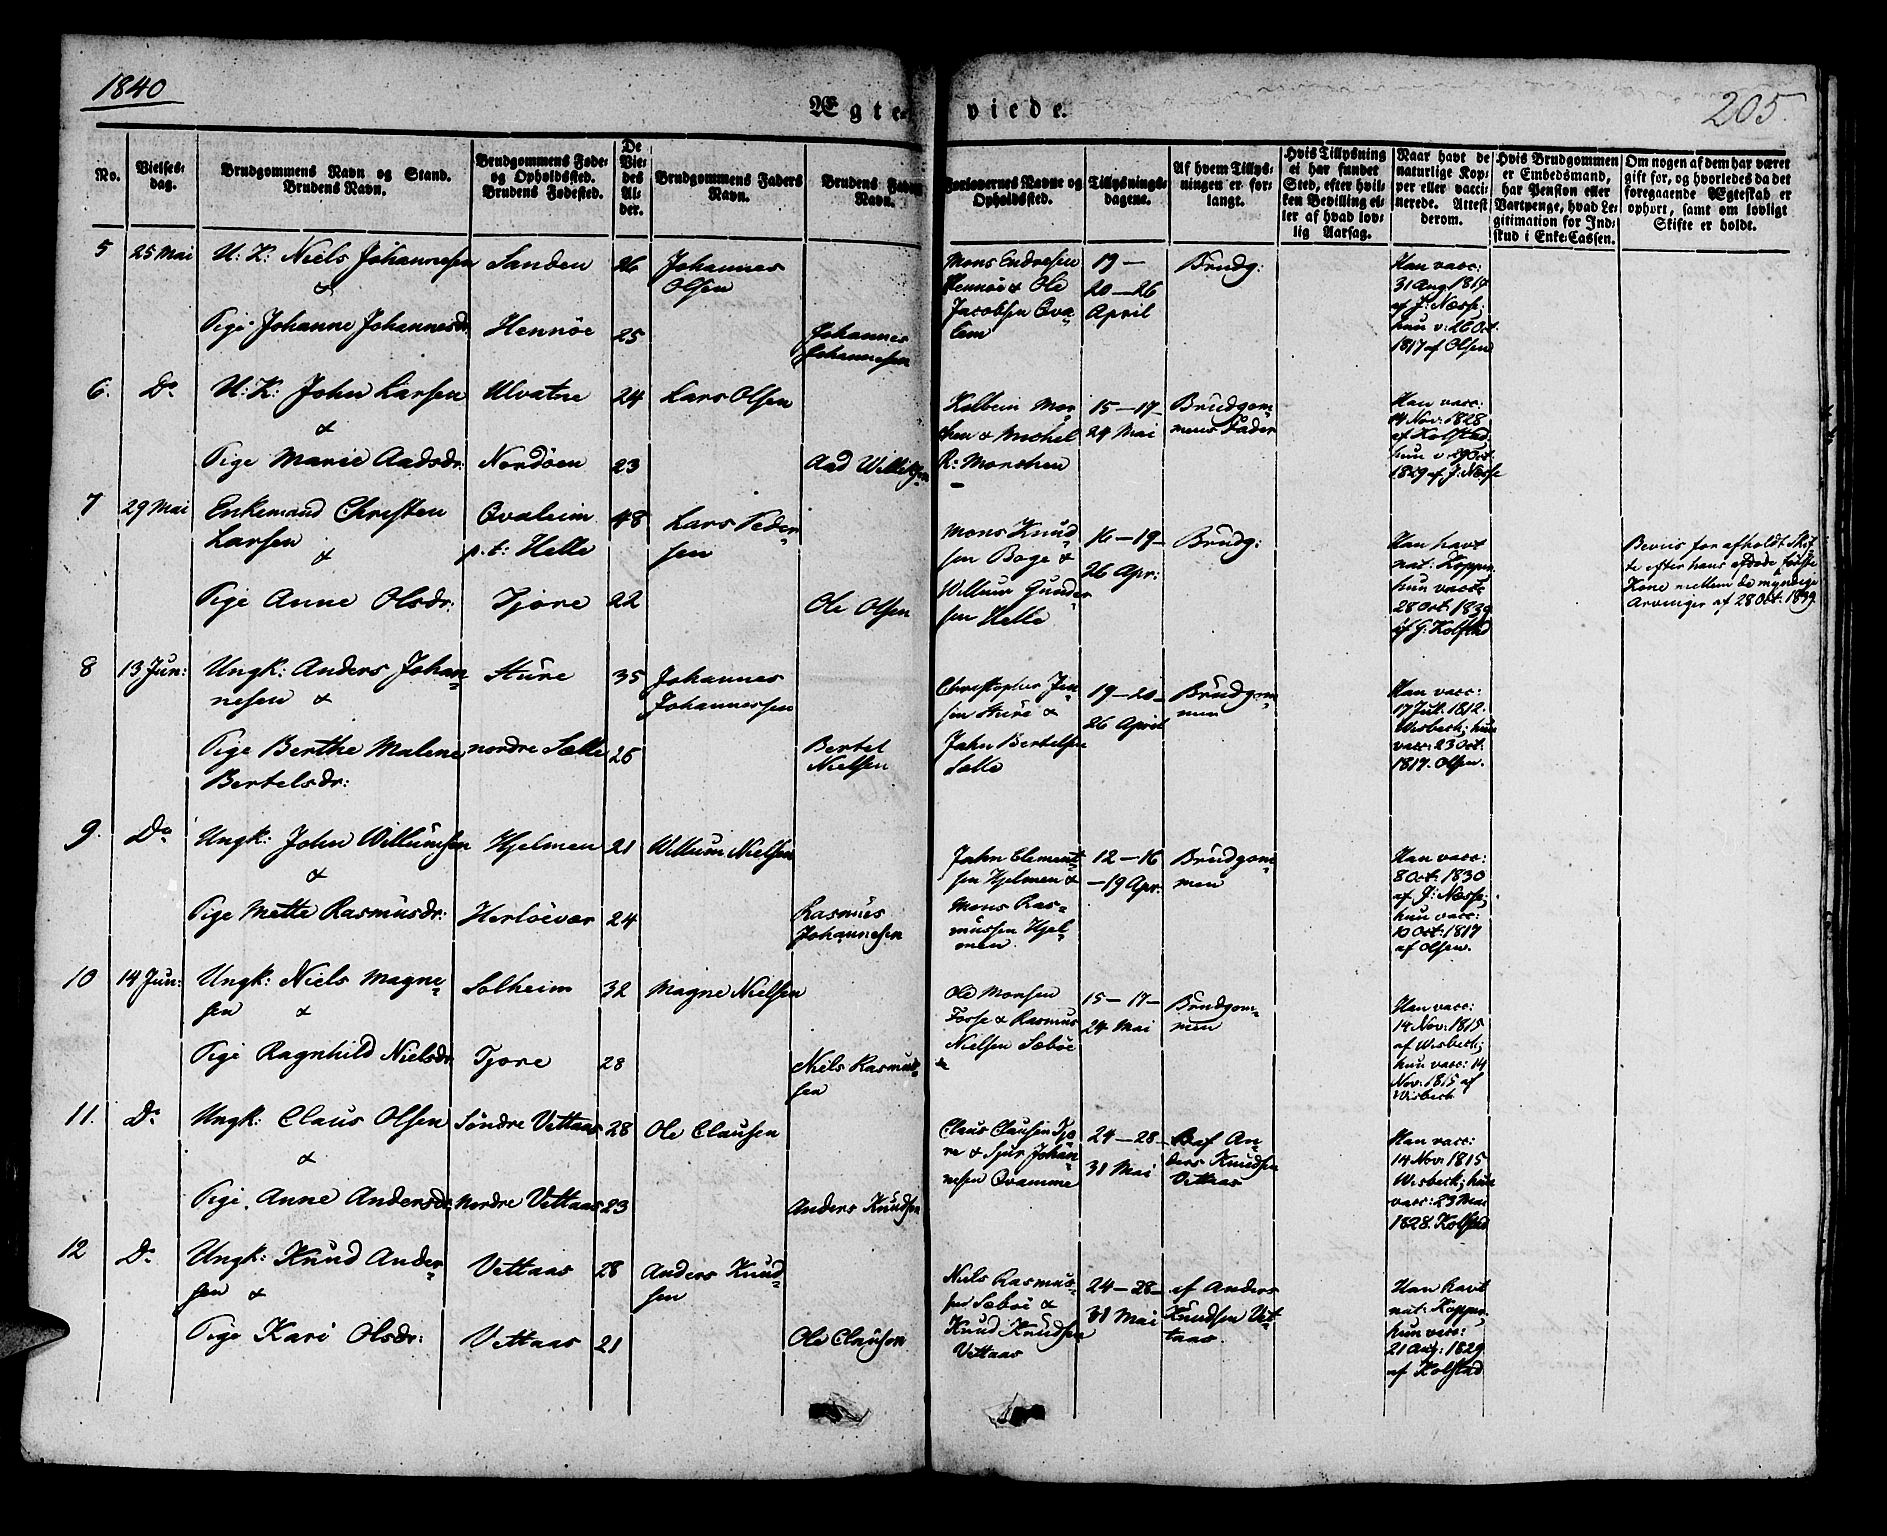 1840
Ægteviede.
205.
No.
Vielses-
dag.
Brudgommens Navn og Stand.
Brudens Navn.
Brudgommens Føde-
og Opholdssted.
Brudens Fødested.
De
Vie-
des
Al-
der.
Brudgommens Faders
Navn.
Brudens Faders
Navn.
Forlovernes Navne og
Opholdssted.
Tillysnings-
dagene.
Af hvem Tillys-
ningen er for-
langt.
Hvis Tillysning
ei har fundet
Sted, efter hvil-
ken Bevilling el-
ler af hvad lov-
lig Aarsag.
Naar havt de
naturlige Kop-
per eller vacci-
nerede. Attest
derom.
Hvis Brudgommen
er Embedsmand,
har Pension eller
Vartpenge, hvad Le-
gitimation for Ind-
skud i Enke-Cassen.
Om nogen af dem har været
gift før, og hvorledes da det
foregaaende Ægteskab er
ophørt, samt om lovligt
Skifte er holdt.
5
25 Mai
U: K: Niels Johannesen
&
Pige Johanne Johannesdr
Sanden
Hennöe
26
25
Johannes
Olsen
Johannes
Johannesen
Mons Endresen
Hennöe & Ole
Jacobsen Qva-
lem
19 —
20 — 26
April
Brudg:
Han vacc:
31 Aug. 1819
af J: Næsse,
hun v: 26 Oct.
1817 af Olsen
6.
Do
U: K: John Larsen
&
Pige Marie Aadsdr:
Ulvatne
Nordöen
24
23
Lars Olsen
Aad Willeksen
Kolbein Mon-
sen & Michel
R: Monsen
15 — 17 —
24 Mai
Brudgom-
mens Fader
Han vacc:
4 Nov: 1828
af Kolstad
hun v: 19 Oct.
1829 af J: Næsse
7
29 Mai
Enkemand Christen
Larsen
&
Pige Anne Olsdr:
Qvaleim
p.t: Helle
Tjore
48
22
Lars Peder-
sen
Ole Olsen
Mons Knud-
sen Boge &
Willum Gunder-
sen Helle
16 — 19 —
26 Apr:
Brudg:
Han havt
nat: Kopper
hun vacc:
28 Oct: 1839
af G: Kolstad
Beviis for afholdt Skif-
te efter hans afdøde første
Kone mellem de myndige
Arvinger af 28 Oct: 1839.
8
13 Jun:
Ungk: Anders Johan-
nesen &
Pige Berthe Malene
Bertelsdr:
Sture
nordre Sælle
35
25
Johannes
Johannessen
Bertel
Nielsen
Christopher Jen-
sen Sture &
John Bertelsen
Sælle
19 — 20 —
26 April
Brudgom-
men
Han vacc:
17 Jul. 1812.
Wisbech; hun
vacc: 23 Oct.
1817. Olsen.
9.
Do
Ungk: John Willumsen
&
Pige Mette Rasmusdr:
Hjelmen
Herlöevær
21
24
Willum Nielsen
Rasmus
Johannesen
John Clement-
sen Hjelmen &
Mons Ras-
mussen Hjel-
men
12 — 16
— 19 Apr:
Brudgom-
men
Han vacc:
8 Oct: 1830
af J: Næsse;
hun vacc:
10 Oct: 1817
af Olsen.
10
14 Jun:
Ungk: Niels Magne-
sen &
Pige Ragnhild Nielsdr:
Solheim
Tjore
32
28
Magne Nielsen
Niels Rasmus-
sen
Ole Monsen
Fosse & Rasmus
Nielsen Sæböe
15 — 17 —
24 Mai
Brudgom-
men
Han vacc:
14 Nov: 1815
af Wisbech;
hun vacc: 14
Nov: 1815 af
Wisbech
11.
Do
Ungk: Claus Olsen
&
Pige Anne Andersdr:
Söndre Vettaas
nordre Vettaas
28
23
Ole Clausen
Anders Knudsen
Claus Clausen Tjo-
re & Sjur Johan-
nesen Qvamme
24 — 28 —
31 Mai
af An-
ders Knudsen
Vettaas
Han vacc:
14 Nov: 1815
Wisbech; hun
vacc: 23 Mai
1828. Kolstad
12
Do
Ungk: Knud Ander-
sen &
Pige Kari Olsdr:
Vettaas
Vettaas
28
21
Anders Knud-
sen
Ole Clausen
Niels Rasmus-
sen Sæböe &
Knud Knudsen
Vettaas
24 — 28 —
31 Mai
af Anders
Knudsen Vet-
taas
Han havt
nat: Kopper,
hun vacc:
21 Aug: 1829
af Kolstad